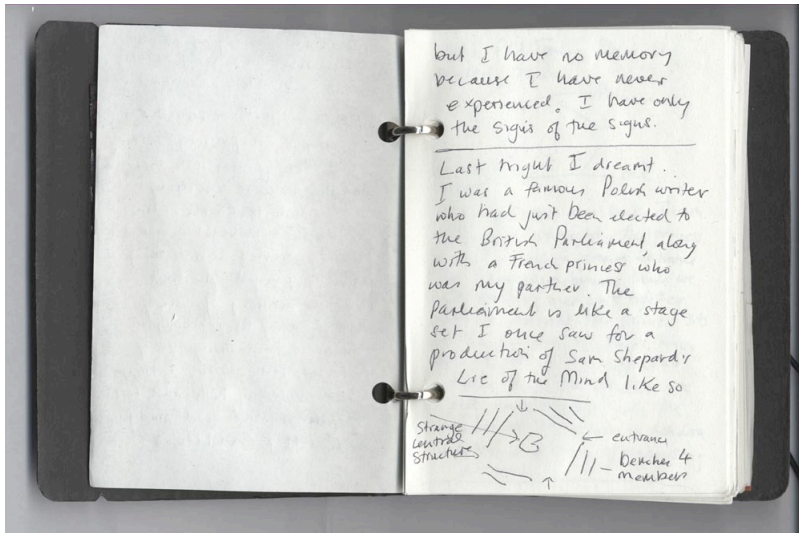 but I have no memory
because I have never
experienced. I have only
the signs of the signs.
Last night I dreamt.
I was a famous Polish writer
who had just been elected to
the British Parliament, along
with a French princess who
was my partner. The
Parliament is like a stage
set I once saw for a
production of Sam Shepard's
Lie of the Mind like so
Strange
central
Structure
entrance
benches 4
members